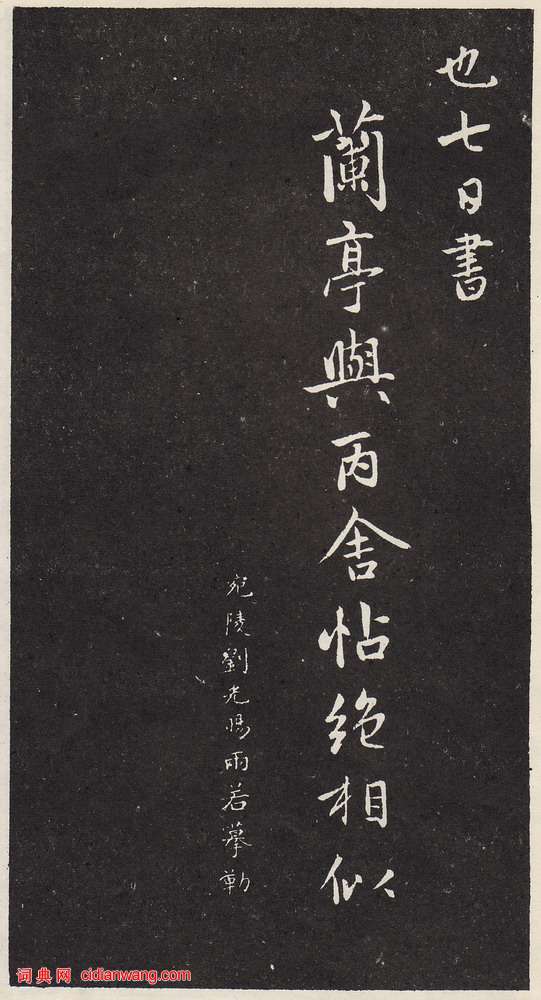 也七日書
蘭亭與丙舍帖絶相似
宛陵劉光暘雨若摹勒
词典网 cidianwang.com